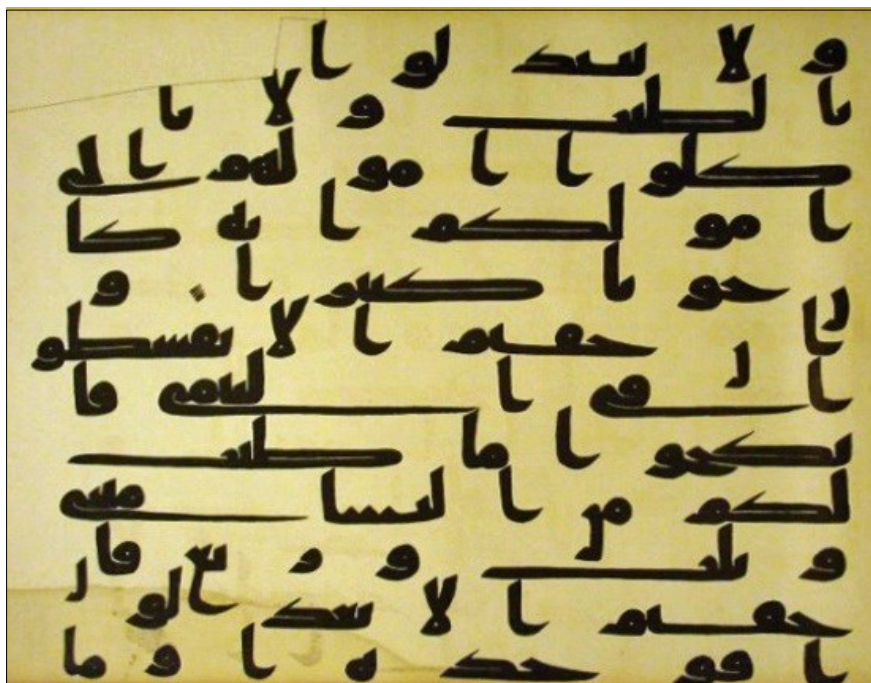 و لا تتبدلوا
بالطيب و لا تا
كلوا امولهم الى
امولكم انه كا
ن حوبا كبيرا و
ان خفتم الا تقسطو
ا في اليتمى فا
نكحوا ما طب
لكم من النسا مثنى
و ثلث و ربع فا
ن خفتم الا تعدلو
ا فوحدة او ما